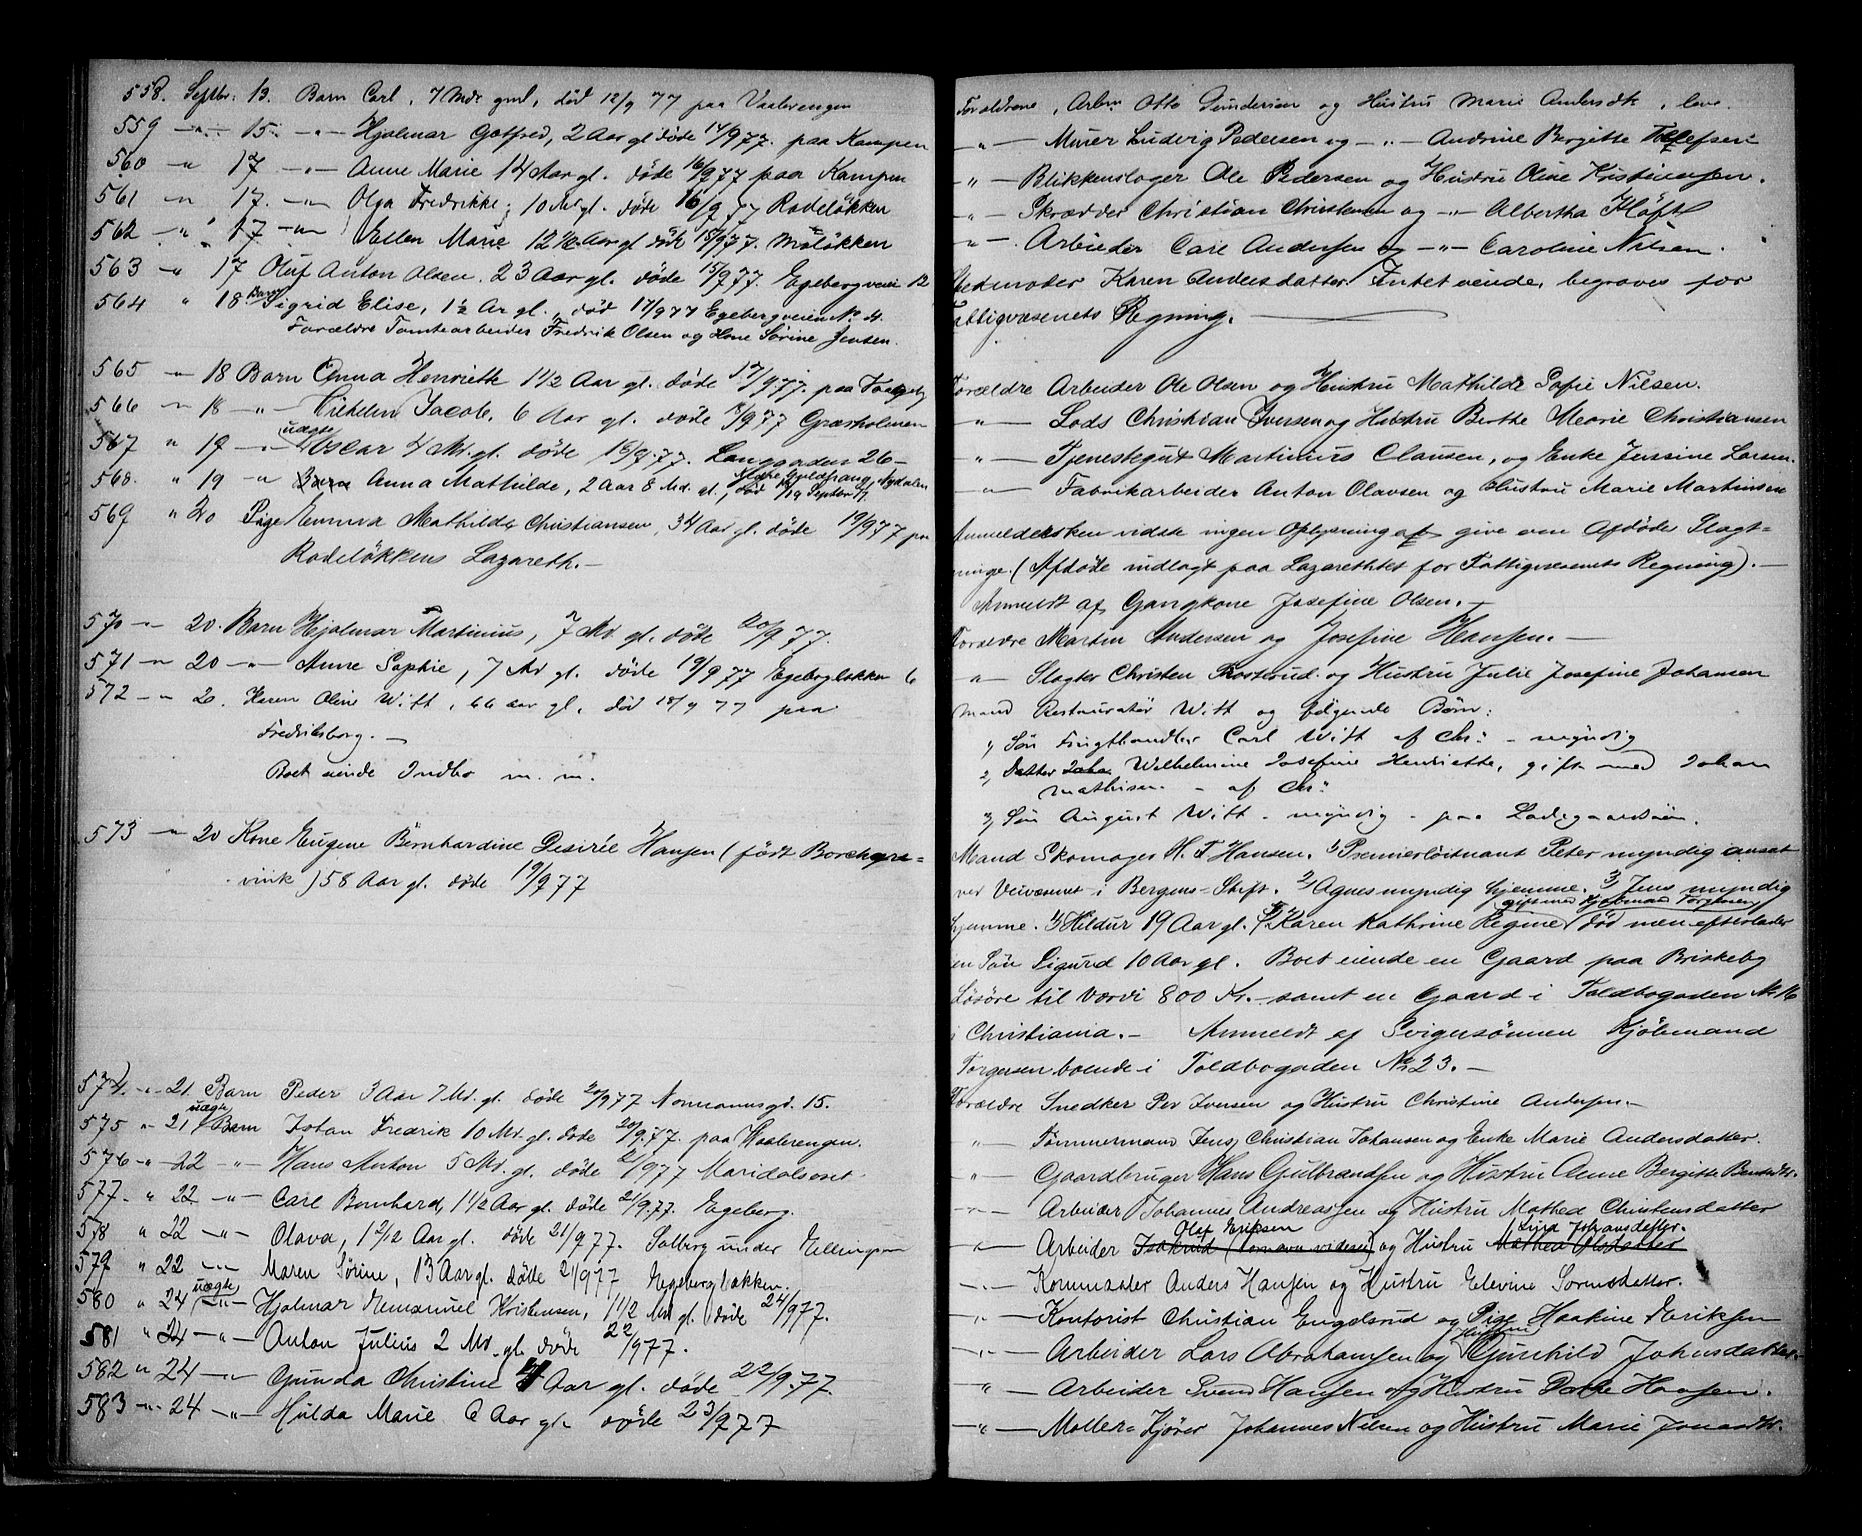 558. Septbr: 13. Barn Carl, 7 Mdr gml, død 12/9 77 paa Vaalerengen
559 -"- 15. -"- Hjalmar Gotfred, 2 Aar gl døde 14/9 77. paa Kampen
560 -"- 17 -"- Anne Marie 14 Aar gl. døde 16/9 77 paa Kampen
561 " 17. -"- Olga Fredrikke, 10 Md gl. døde 16/9 77 Rodeløkken
562 " 17 -"- Ellen Marie 12 1/2 Aar gl døde 15/9 77.
563 " 17 Oluf Anton Olsen. 23 Aar gl. døde 15/9 77. Egebergveien 12
564 " 18. Barn Sigrid Elise, 1½ Ar gl., død 17/9 77 Egebergveien No 4.
Forældre Tomtearbeider Fredrik Olsen og Kone Sørine Jensen.
565 " 18 Barn Anna Henriette 1 1/2 Aar gl. døde 17/9 77. paa
566 " 18 -"- Vilhelm Jacob, 6 Aar gl. døde 18/9 77 Græsholmen
567 " 19 -"- uægte Oscar 4 Md. gl. døde 18/9 77. Langgaden 26-
568. " 19 -"- Barn Anna Mathilde, 2 Aar 8 Md. gl., død September Nydalen
569 " 20 Pige Emma Mathilde Christiansen, 34 Aar gl. døde 19/9 77 paa
Rodeløkkens Lazareth.-
570 -"- 20. Barn Hjalmar Martinius, 7 Md. gl. døde 20/9 77.
571 -"- 20 -"- Anne Sophie, 7 Md gl. døde 19/9 77 Egebergløkken 6
572 -"- 20. Karen Oline Witt, 66 aar gl, død 18/9 77 paa
Fredriksborg.-
Boet eiende Indbo m. m.
573 -"- 20 Kone Eugene Bernhardine Desirée Hansen (født Borchgre=
vink) 58 Aar gl. døde 19/9 77
574. -"- 21. Barn Peder 3 Aar 7 Md. gl. døde 20/9 77 Normannsgd. 15.
575 " 21 uægte Barn Johan Fredrik 10 Md. gl. døde 20/9 77. paa Waalerengen.
576 -"- 22 -"- Hans Anton 5 Md. gl. døde 21/9 77 Maridalsvet.
577. " 22 -"- Carl Bernhard, 1 1/2 Aar gl. døde 21/9 77. Egeberg.
578 " 22 -"- Olava, 1 2/12 Aar gl. døde 21/9 77. Solberg under Ellingsrud
579 " 22 -"- Maren Sørine, 13 Aar gl. døde 21/9 77 Egebergbakken.
580 " 24 uægte -"- Hjalmar Emanuel Kristensen, 1 1/2 Md gl. døde 24/9 77.
581 " 24 -"- Anton Julius 2 Md. gl. døde 22/9 77.
582 " 24 -"- Gunda Christine 4 Aar gl. døde 22/9. 77.
583 -"- 24 -"- Hulda Marie 6 Aar gl. døde 23/9 77
Forældrene, Arbm Otto Gundersen og Hustru Marie Andersdtr, leve.
-"- Murer Ludvig Pedersen og -"- Andrine Bergitte Tollefsen
-"- Blikkenslager Ole Pedersen og Hustru Oline Kristiansen.
-"- Skrædder Christian Christensen og -"- Albertha Kløft
-"- Arbeider Carl Andersen og -"- Caroline Nilsen.
Stedmoder Karen Andersdatter. Intet eiende, begraves for
Fattigvæsenets Regning.
Forældre Arbeider Ole Olsen og Hustru Mathilde Sofie Nilsen.
-"- Lods Christian Iversen og Hustru Berthe Marie Christiansen
-"- Tjenestegut Martinius Clausen, og Enke Jensine Larsen.
-"- Fabrikarbeider Anton Olavsen og Hustru Marie Martinsen
Anmeldersken vidste ingen Oplysning at give om Afdøde Slagt=
ninge. (Afdøde indlagt paa Lazarethet for Fattigvæsenets Regning).-
Anmeldt af Gangkone Josefine Olsen.-
Forældre Marten Andersen og Josefine Hansen.-
" Slagter Christen Rosterud og Hustru Julie Josefine Johansen
Mand Restauratør Witt og følgende Børn:
1, Søn Frugthandler Carl Witt af Chr: - myndig
2, Datter Wilhelmine Josefine Henriette, gift med Johan
Mathisen - af Chr:
3, Søn August Witt - myndig - paa Ladegaardsøen.
Mand Skomager H. T. Hansen. 1/ Premierløitnant Peter myndig ansat
ved Veivæsenet i Bergens-Stift. 2/ Agnes myndig hjemme. 3/ Jens myndig
hjemme. 4/ Hildur 19 Aar gl. 5/ Karen Kathrine Regine gift med Kjøbmand Torgersen, død men efterlader
en Søn Sigurd 10 Aar gl. Boet eiende en Gaard paa Briskeby
Løsøre til Værdi 800 Kr.- samt en Gaard i Toldbogaden No 16
i Christiania.- Anmeldt af Svigersønnen Kjøbmand
Torgersen boende i Toldbogaden No 23.-
Forældre Snedker Per Iversen og Hustru Christine Andersen.-
" Tømmermand Jens Christian Johansen og Enke Marie Andersdatter.
" Gaardbruger Hans Gulbrandsen og Hustru Anne Bergitte
" Arbeider Johannes Andreassen og Hustru Mathea Christensdatter
" Arbeider Olof Eriksen og Hustru Lina Johansdatter. Mathea Olsdatter
-"- Kornmaaler Anders Hansen og Hustru Elevine
-"- Kontorist Christian Engelsrud og Pige Haakine Eriksen
-"- Arbeider Lars Abrahamsen og Hustru Gunhild Johnsdatter.
-"- Arbeider Svend Hansen og Hustru Hansen.
-"- Møller=Kjører Johannes Nilsen og Hustru Marie